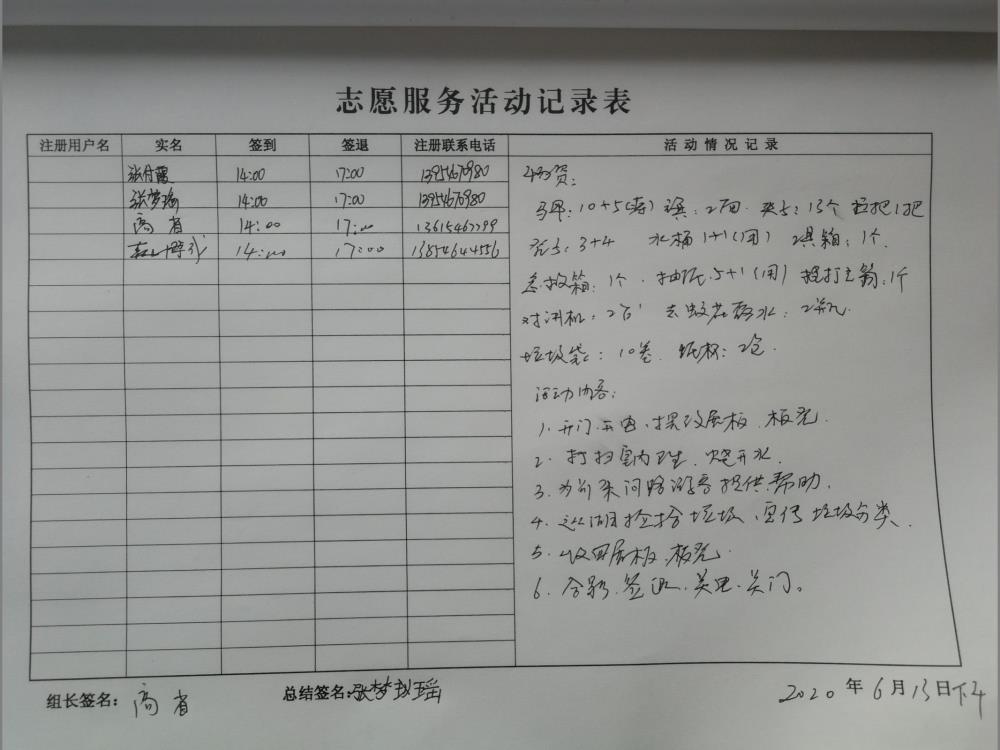 志愿服务活动记录表
注册用户名 实名 签到 签退 注册联系电话 活动情况记录
张丹霞 14:00 17:00 13954670980
张梦瑶 14:00 17:00 13954670980
高省 14:00 17:00
14:00 17:00 13854644556
物资:
马甲:10+5(蒋) 旗:2面 夹子:13个 拉把1把
凳子:3+4 水桶1+1(用) 工具箱:1个.
急救箱:1个. 抽纸:5+1(用) 箱:1个
对讲机:2台 去蚊花露水:2瓶.
垃圾袋:10卷. 纸杯:2包.
活动内容:
1. 开门.开电.摆放展板、板凳.
2. 打扫室内卫生、烧开水.
3. 为前来问路游客提供帮助.
4. 巡湖捡拾垃圾、宣传垃圾分类、
5. 收回展板、板凳.
6. 合影、签退、关电、关门。
组长签名: 高省
总结签名: 张梦瑶
2020年6月13日下午